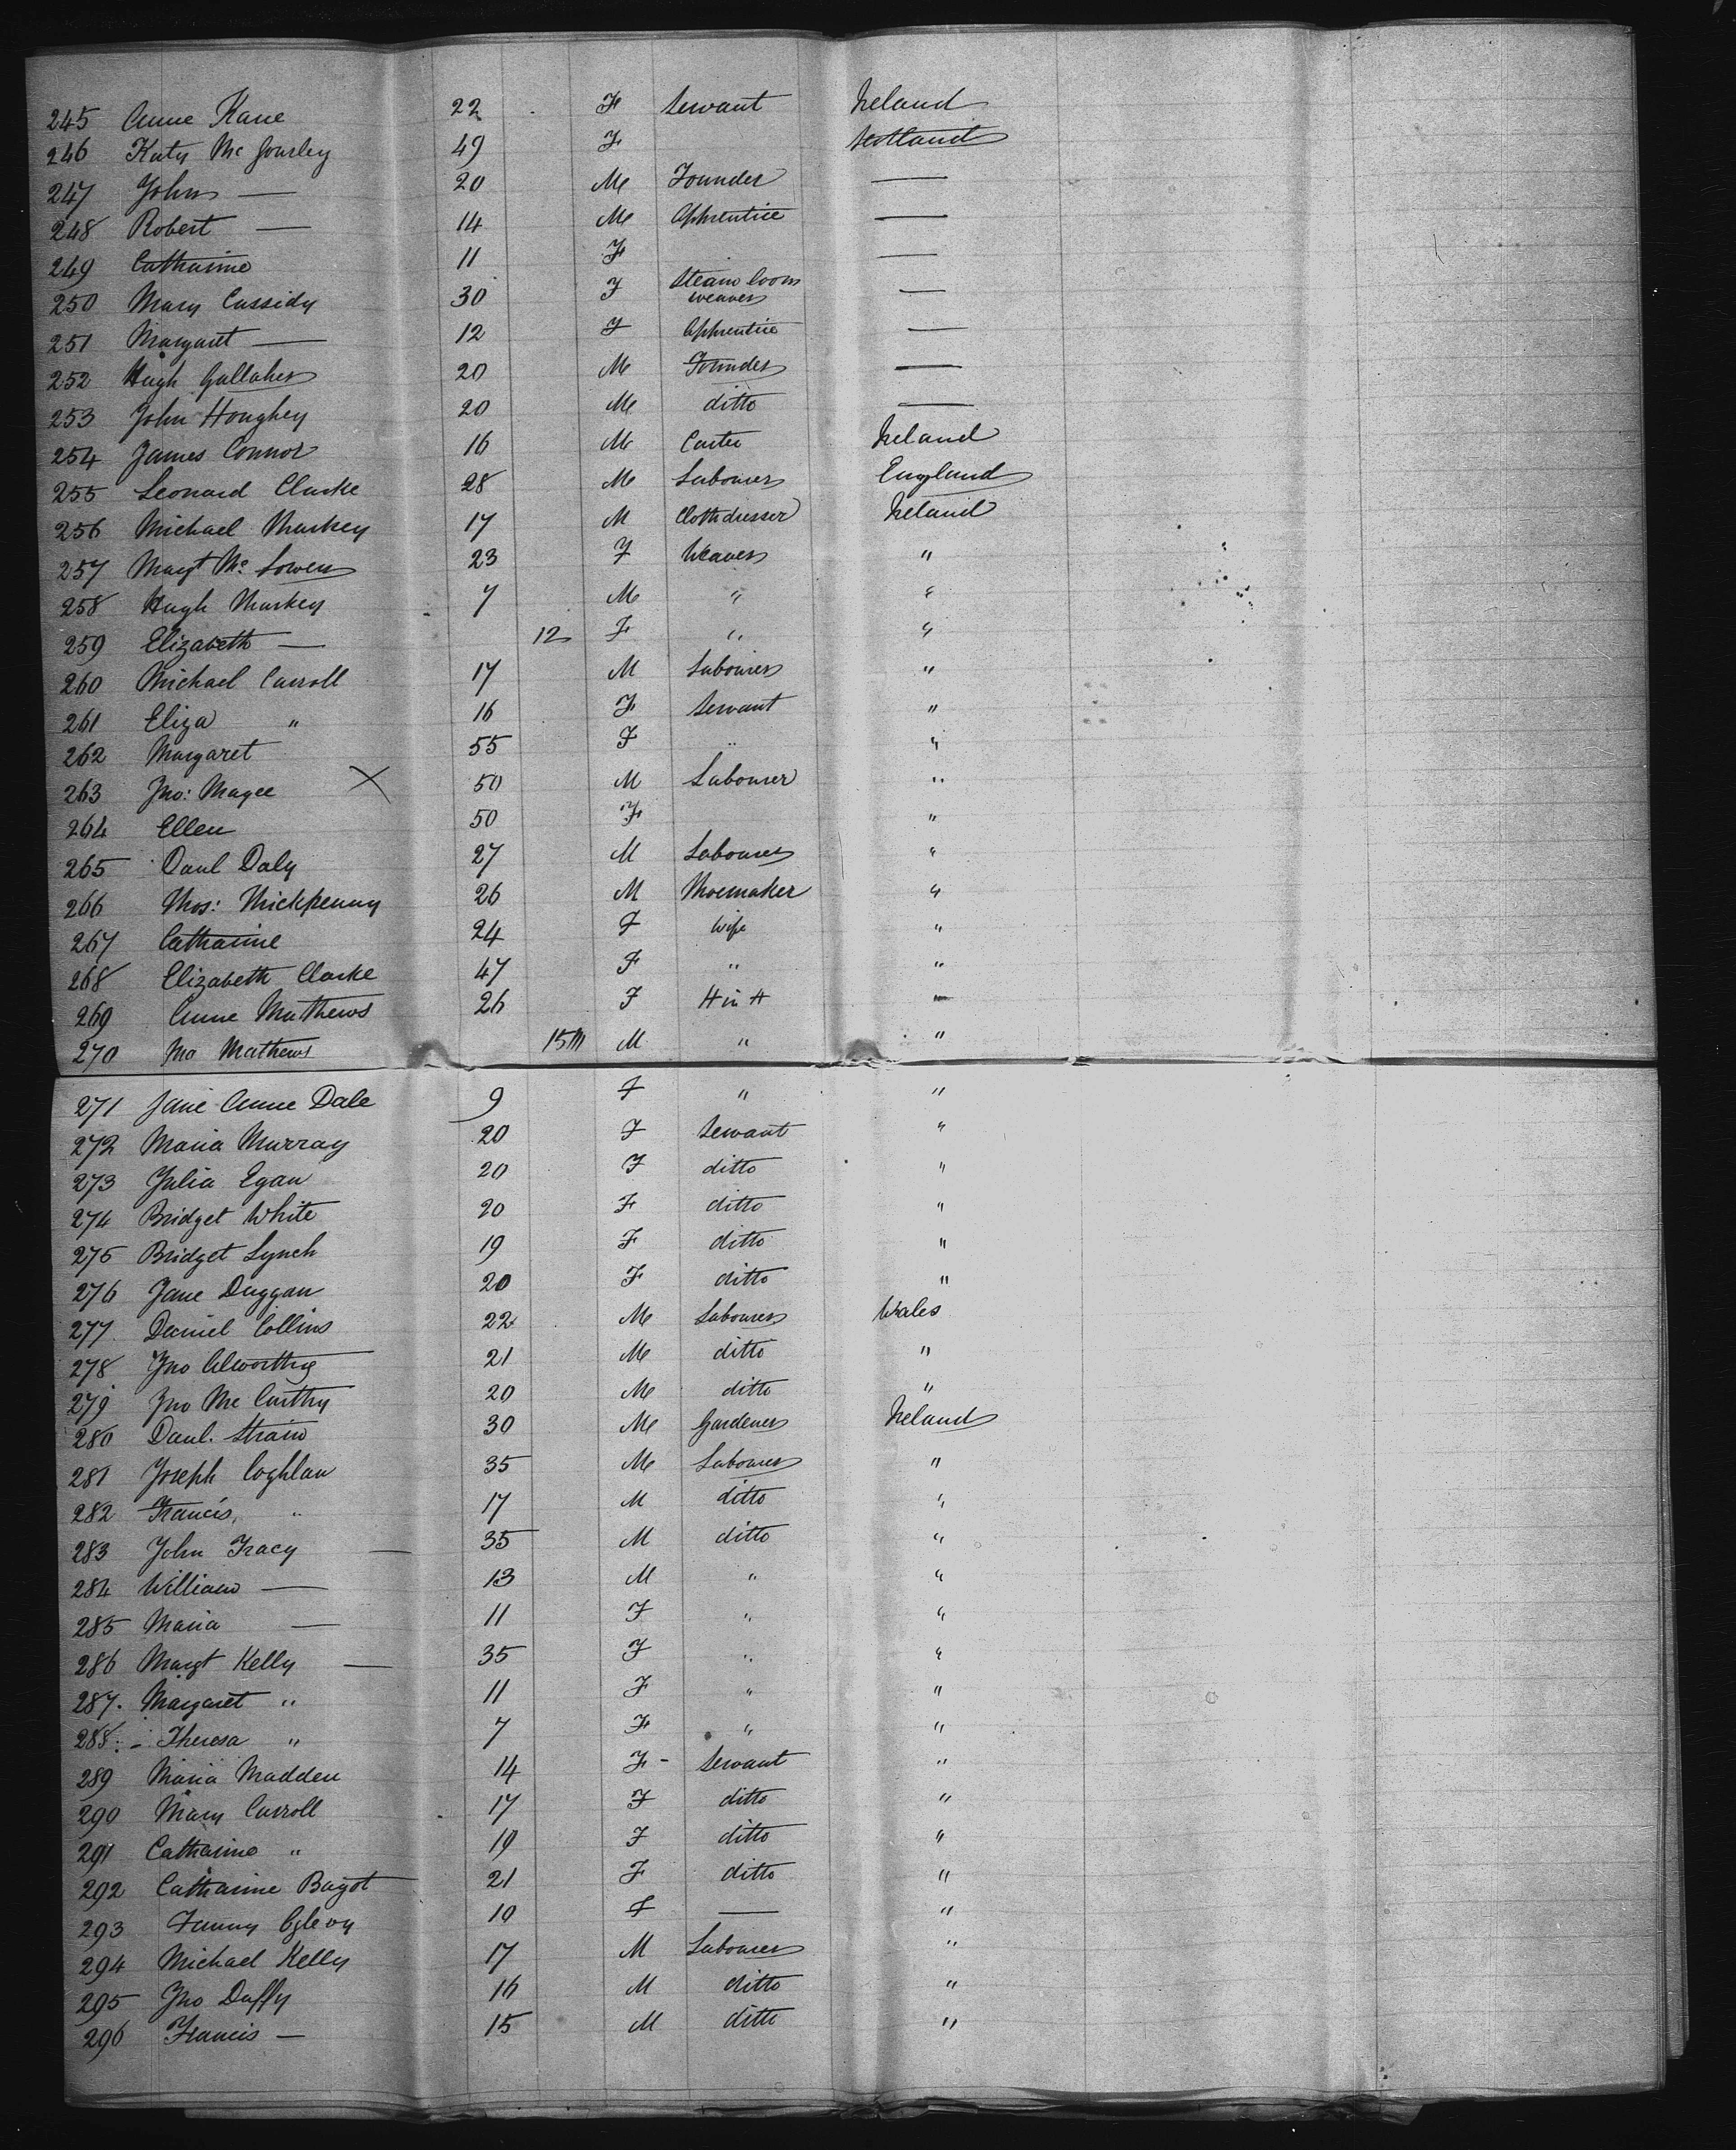 245 Anne Kane 22 F Servant Ireland
246 Katy Mc Gourley 49 F Scotland
247 John — 20 M Founder —
248 Robert — 14 M Apprentice —
249 Catharine 11 F —
250 Mary Cassidy 30 F Steam loom weaver —
251 Margaret — 12 F Apprentice —
252 Hugh Gallaher 20 M Founder —
253 John Houghey 20 M ditto —
254 James Connor 16 M Carter Ireland
255 Leonard Clarke 28 M Labourer England
256 Michael Markey 17 M Clothdresser Ireland
257 Margt Mc 23 F Weaver "
258 Hugh Markey 7 M " "
259 Elizabeth — 12 F " "
260 Michael Carroll 17 M Labourer "
261 Eliza " 16 F Servant "
262 Margaret 55 F " "
263 Jno: Magee X 50 M Labourer "
264 Ellen 50 F "
265 Danl Daly 27 M Labourer "
266 Thos: 26 M Shoemaker "
267 Catharine 24 F Wife "
268 Elizabeth Clarke 47 F " "
269 Anne Mathews 26 F "
270 Mathews 15 M M " "
271 Jane Anne Dale 9 F " "
272 Maria Murray 20 F Servant "
273 Julia Egan 20 F ditto "
274 Bridget White 20 F ditto "
275 Bridget Lynch 19 F ditto "
276 Jane Duggan 20 F ditto "
277 Daniel Collins 22 M Labourer Wales
278 Jno Alworthy 21 M ditto "
279 Jno Mc Carthy 20 M ditto "
280 Danl. Strain 30 M Gardener Ireland
281 Joseph Coghlan 35 M Labourer "
282 Francis, " 17 M ditto "
283 John Tracy — 35 M ditto "
284 William — 13 M " "
285 Maria — 11 F " "
286 Margt Kelly — 35 F " "
287. Margaret " 11 F " "
288 Theresa " 7 F " "
289 Maria Madden 14 F - Servant "
290 Mary Carroll 17 F ditto "
291 Catharine " 19 F ditto "
292 Catharine Bagot 21 F ditto "
293 Fanny 10 F — "
294 Michael Kelly 17 M Labourer "
295 Jno Duffy 16 M ditto "
296 Francis — 15 M ditto "